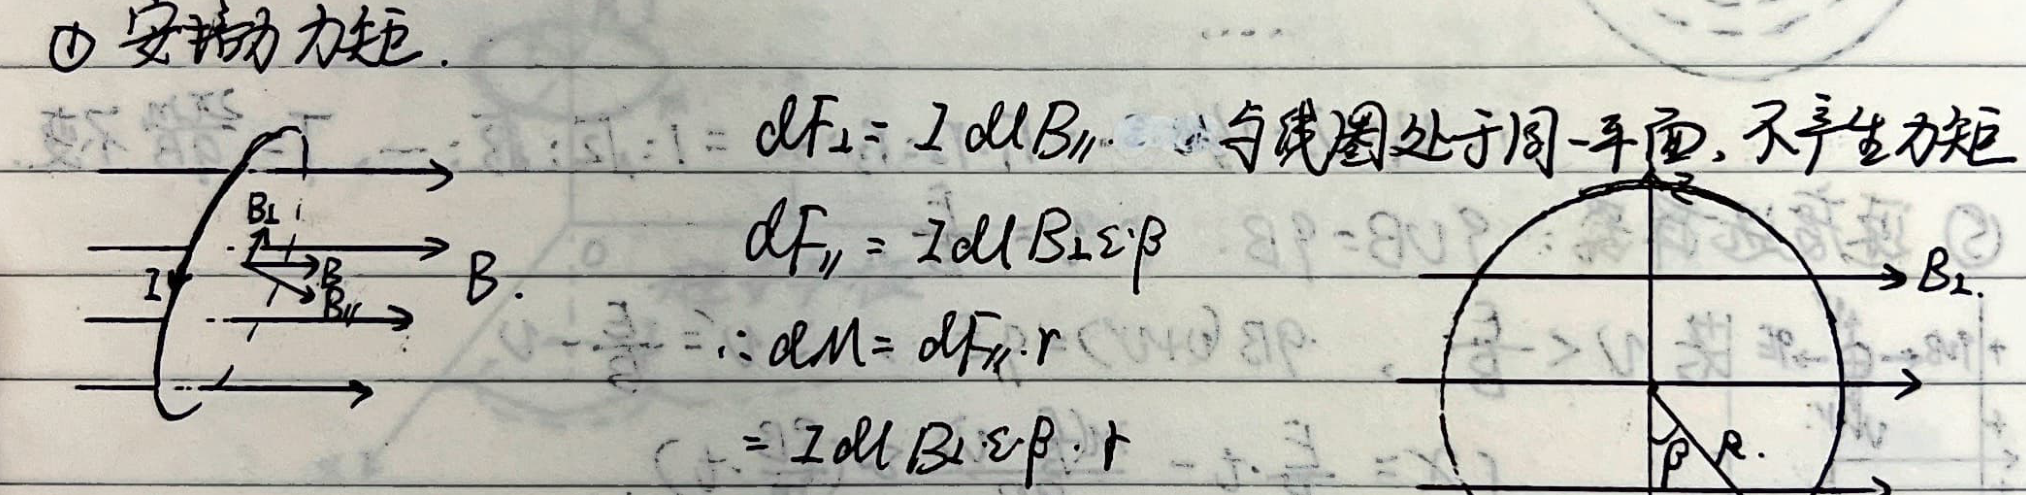 ① 安培力力矩.
dF⊥ = I dl B∥. 与线圈处于同一平面,不产生力矩
dF∥ = I dl B⊥ s·β
∴ dM = dF∥·r
= I dl B⊥·s·β·r
B⊥
I
B
B∥
B.
B⊥.
β
R.